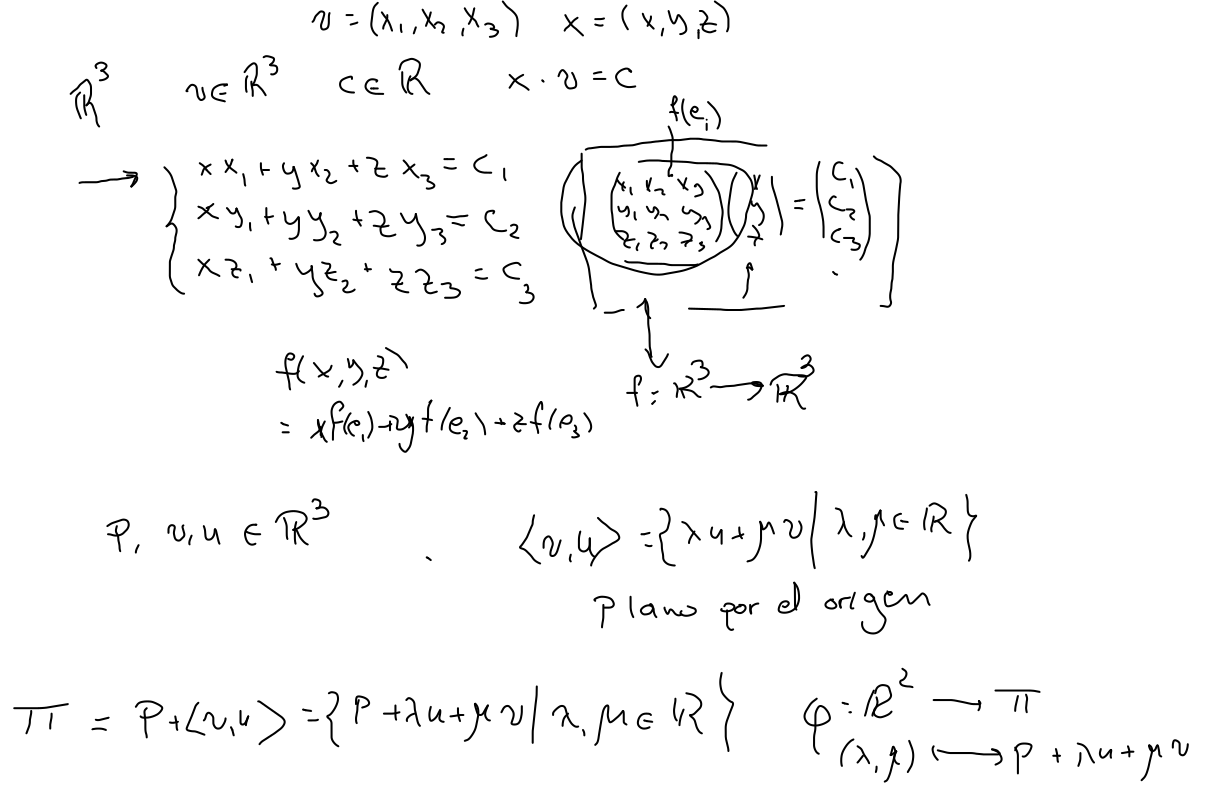 v = (x₁, x₂, x₃) x = (x, y, z)
ℝ³ v ∈ ℝ³ c ∈ ℝ x · v = c
f(eᵢ)
→ { x x₁ + y x₂ + z x₃ = c₁
x y₁ + y y₂ + z y₃ = c₂
x z₁ + y z₂ + z z₃ = c₃
[ ( x₁ x₂ x₃ ) ( x ) = ( c₁ ) ]
( y₁ y₂ y₃ ) ( y ) ( c₂ )
( z₁ z₂ z₃ ) ( z ) ( c₃ )
f(x, y, z)
= x f(e₁) + y f(e₂) + z f(e₃)
f : ℝ³ → ℝ³
P, v, u ∈ ℝ³ . ⟨v, u⟩ = { λu + μv | λ, μ ∈ ℝ }
Plano por el origen
Π = P + ⟨v, u⟩ = { P + λu + μv | λ, μ ∈ ℝ } φ : ℝ² → Π
(λ, μ) ⟼ P + λu + μv